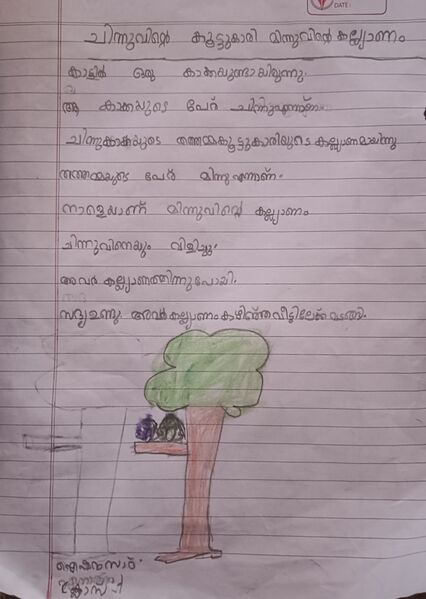 DATE:
ചിന്നുവിന്റെ കൂട്ടുകാരി മിന്നുവിന്റെ കല്ല്യാണം
കാട്ടിൽ ഒരു കാക്കയുണ്ടായിരുന്നു.
ആ കാക്കയുടെ പേര് ചിന്നുഎന്നാണ്.
ചിന്നുകാക്കയുടെ തത്തമ്മകൂട്ടുകാരിയുടെ കല്ല്യാണമായിരുന്നു
തത്തമ്മയുടെ പേര് മിന്നുഎന്നാണ്.
നാളെയാണ് മിന്നുവിന്റെ കല്ല്യാണം
ചിന്നുവിനെയും വിളിച്ചു.
അവർ കല്ല്യാണത്തിന്നുപോയി.
സദ്യഉണ്ടു. അവർകല്ല്യാണംകഴിഞ്ഞ്വീട്ടിലേക്ക്മടങ്ങി.
ക്ലാസ്